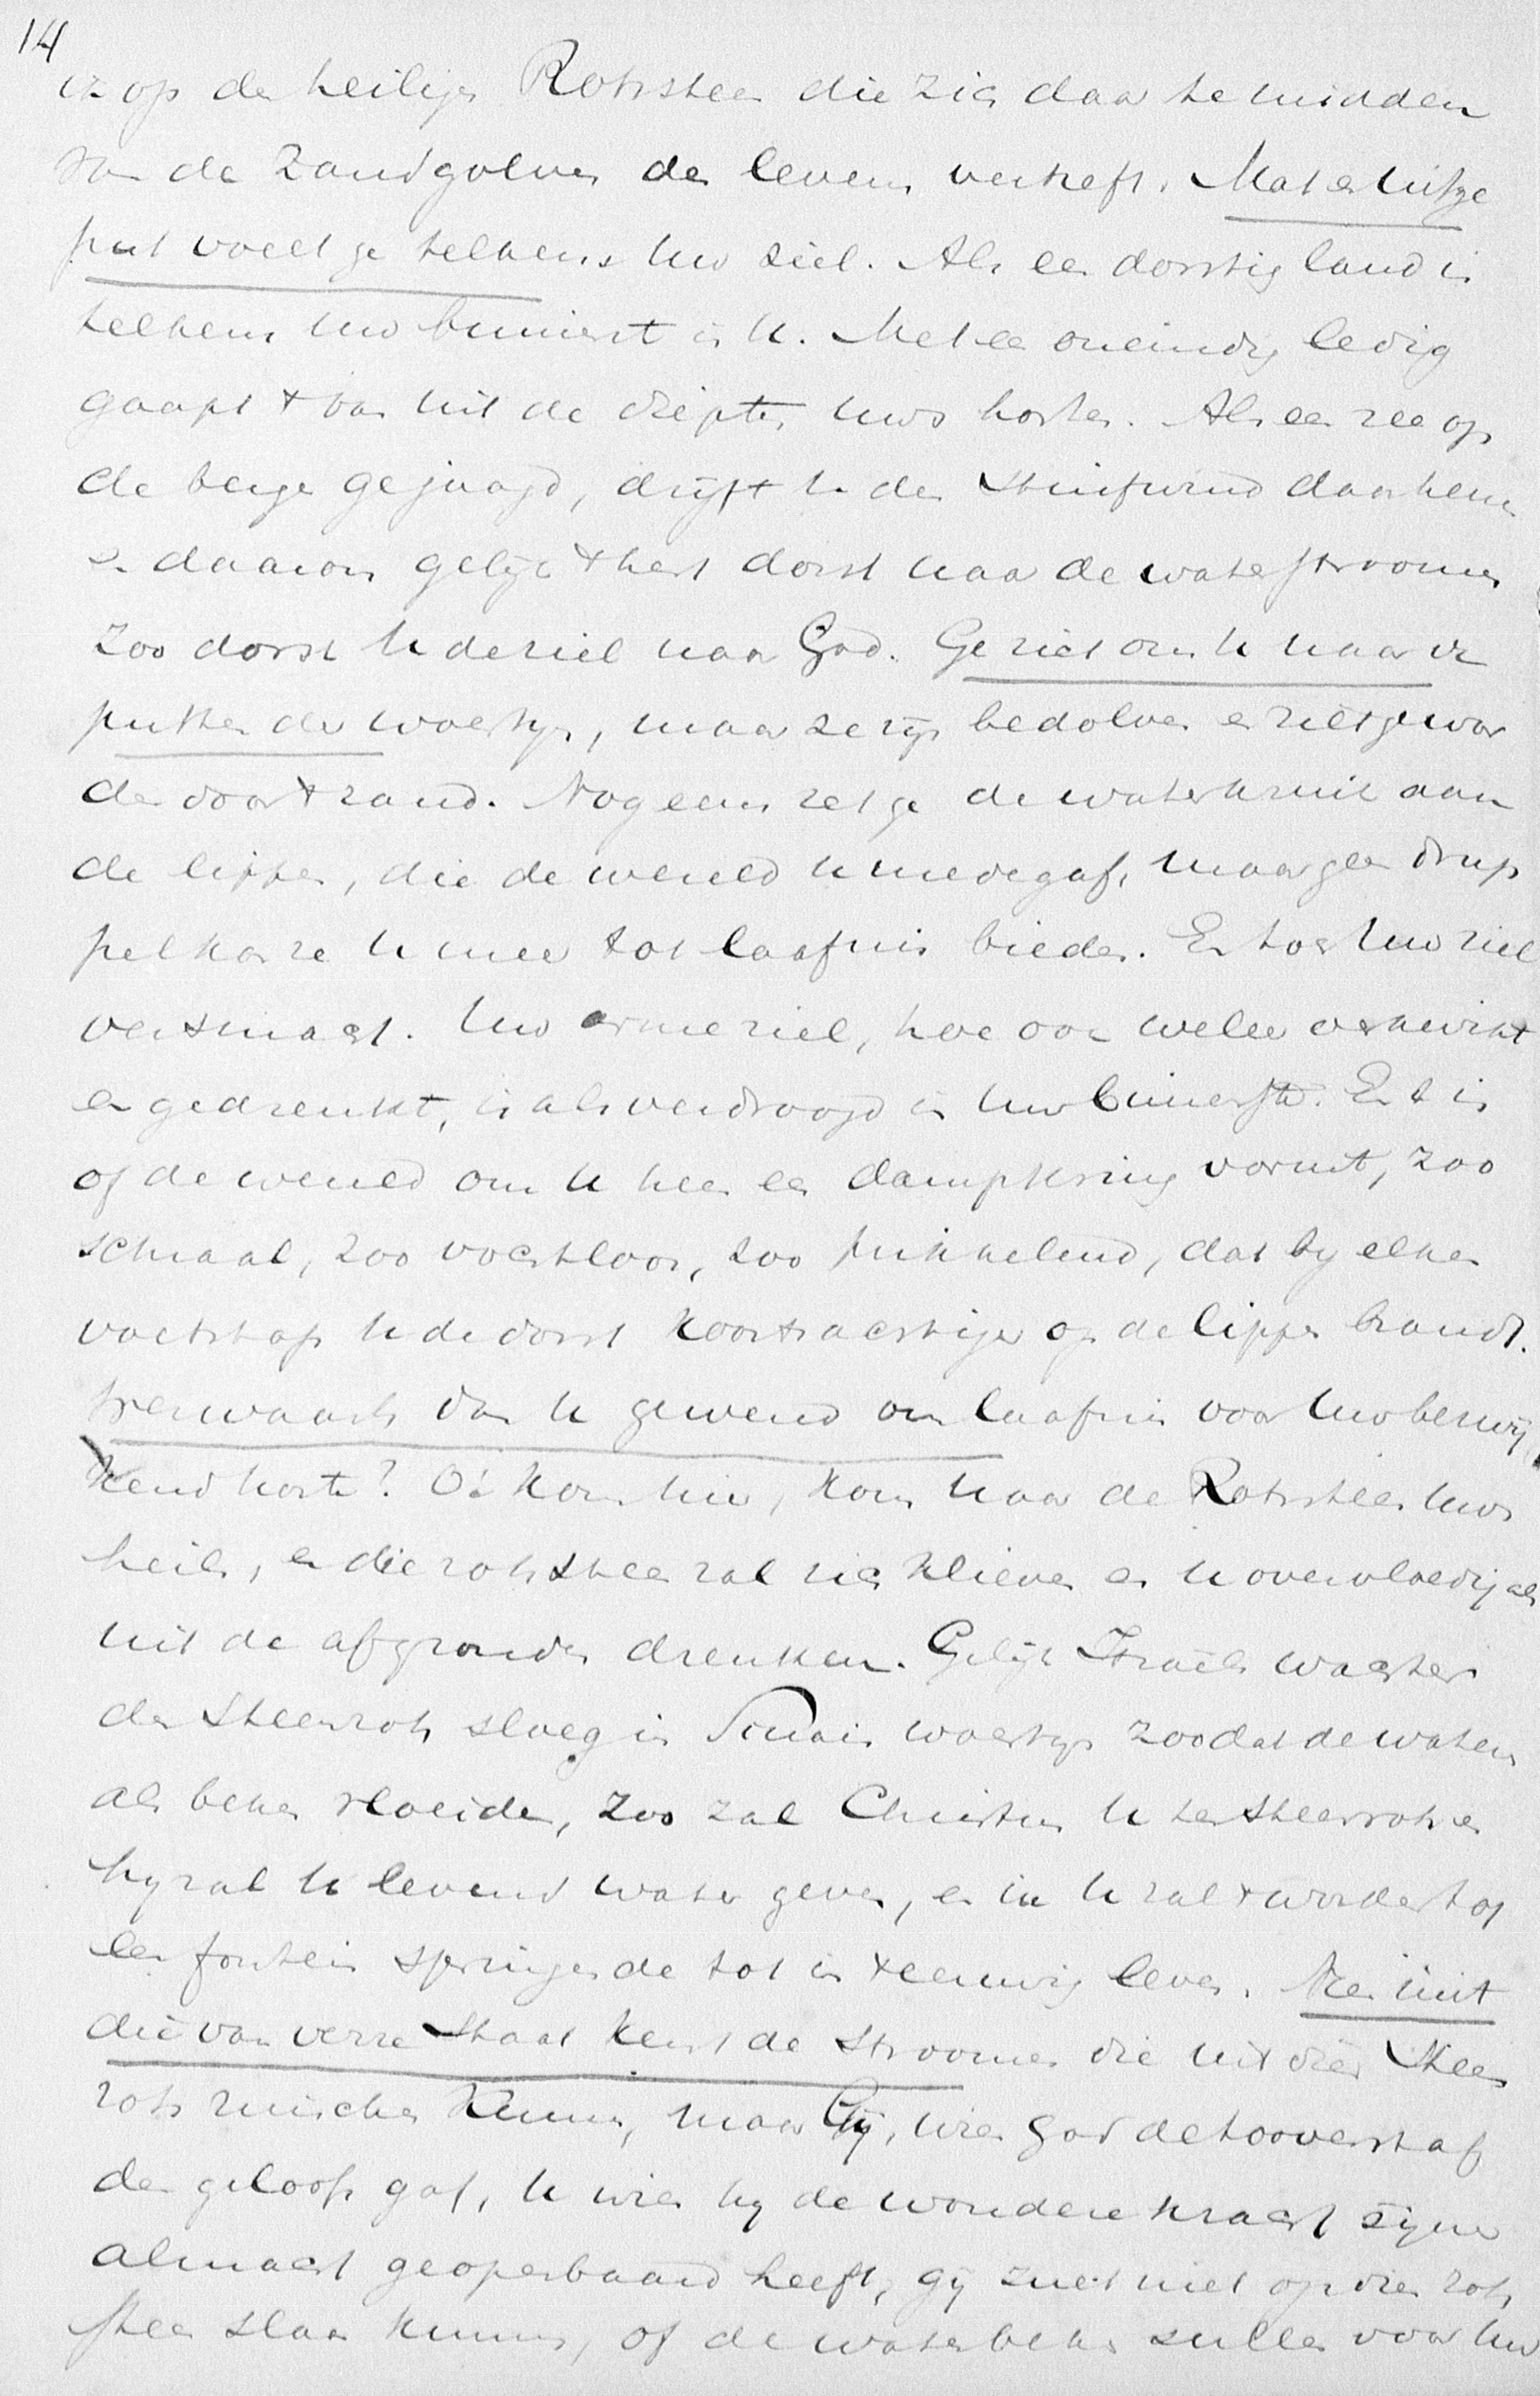 14
is op de heilige Rotssteen die zich daar te midden
van de Zandgolven des levens verheft. Mat en uitge
put voelt ge telkens Uw ziel. Als een dorstig land is
telkens Uw binnenst in U. Met een oneindig ledig
gaapt + van uit de diepte Uws harten. Als een ree op
de bergen gejaagd, drijft U de Stuifwind daarhenen
en daarom gelijk + hert dorst naar de waterstroomen
Zoo dorst U de ziel naar God. Ge ziet om U naar de
putten der woestijn, maar ze zijn bedolven en dicht gewor
den door + zand. Nog eens zet ge de waterkruik aan
de lippen, die de wereld U medegaf, maar geen drup
pel kan ze U meer tot laafnis bieden. En toch Uw ziel
versmacht. Uw arme ziel, hoe ook weleer verkwikt
en gedrenkt, is als verdroogd in Uw binnenste. En + is
of de wereld om U heen een dampkring vormt, zoo
schraal, zoo vochtloos, zoo prikkelend, dat by elken
voetstap U de dorst koortsachtiger op de lippen brandt.
Werwaarts dan U gewend om laafnis voor Uw bezwij
kend harte? O! kom hier, kom naar de Rotssteen Uws
heils, en die rotssteen zal zich klieven en U overvloedig als
uit de afgronden drenken. Gelijk Israëls wachter
de Steenrots sloeg in Sinais woestijn zoodat de wateren
als beken vloeiden, zoo zal Christus U ter Steenrots en
hy zal U levend water geven, en in U zal + worden tot
een fontein springende tot in + eeuwig leven. Neen niet
die van verre Staat kent de Stroomen die uit dien Steen
rots ruischen kunnen, maar Gij, wien God de tooverstaf
des geloofs gaf, U wien hy de wondere kracht zijner
almacht geopenbaard heeft, gij zult niet op dien rots
steen slaan kunnen, of de waterbeken zullen voor Uw